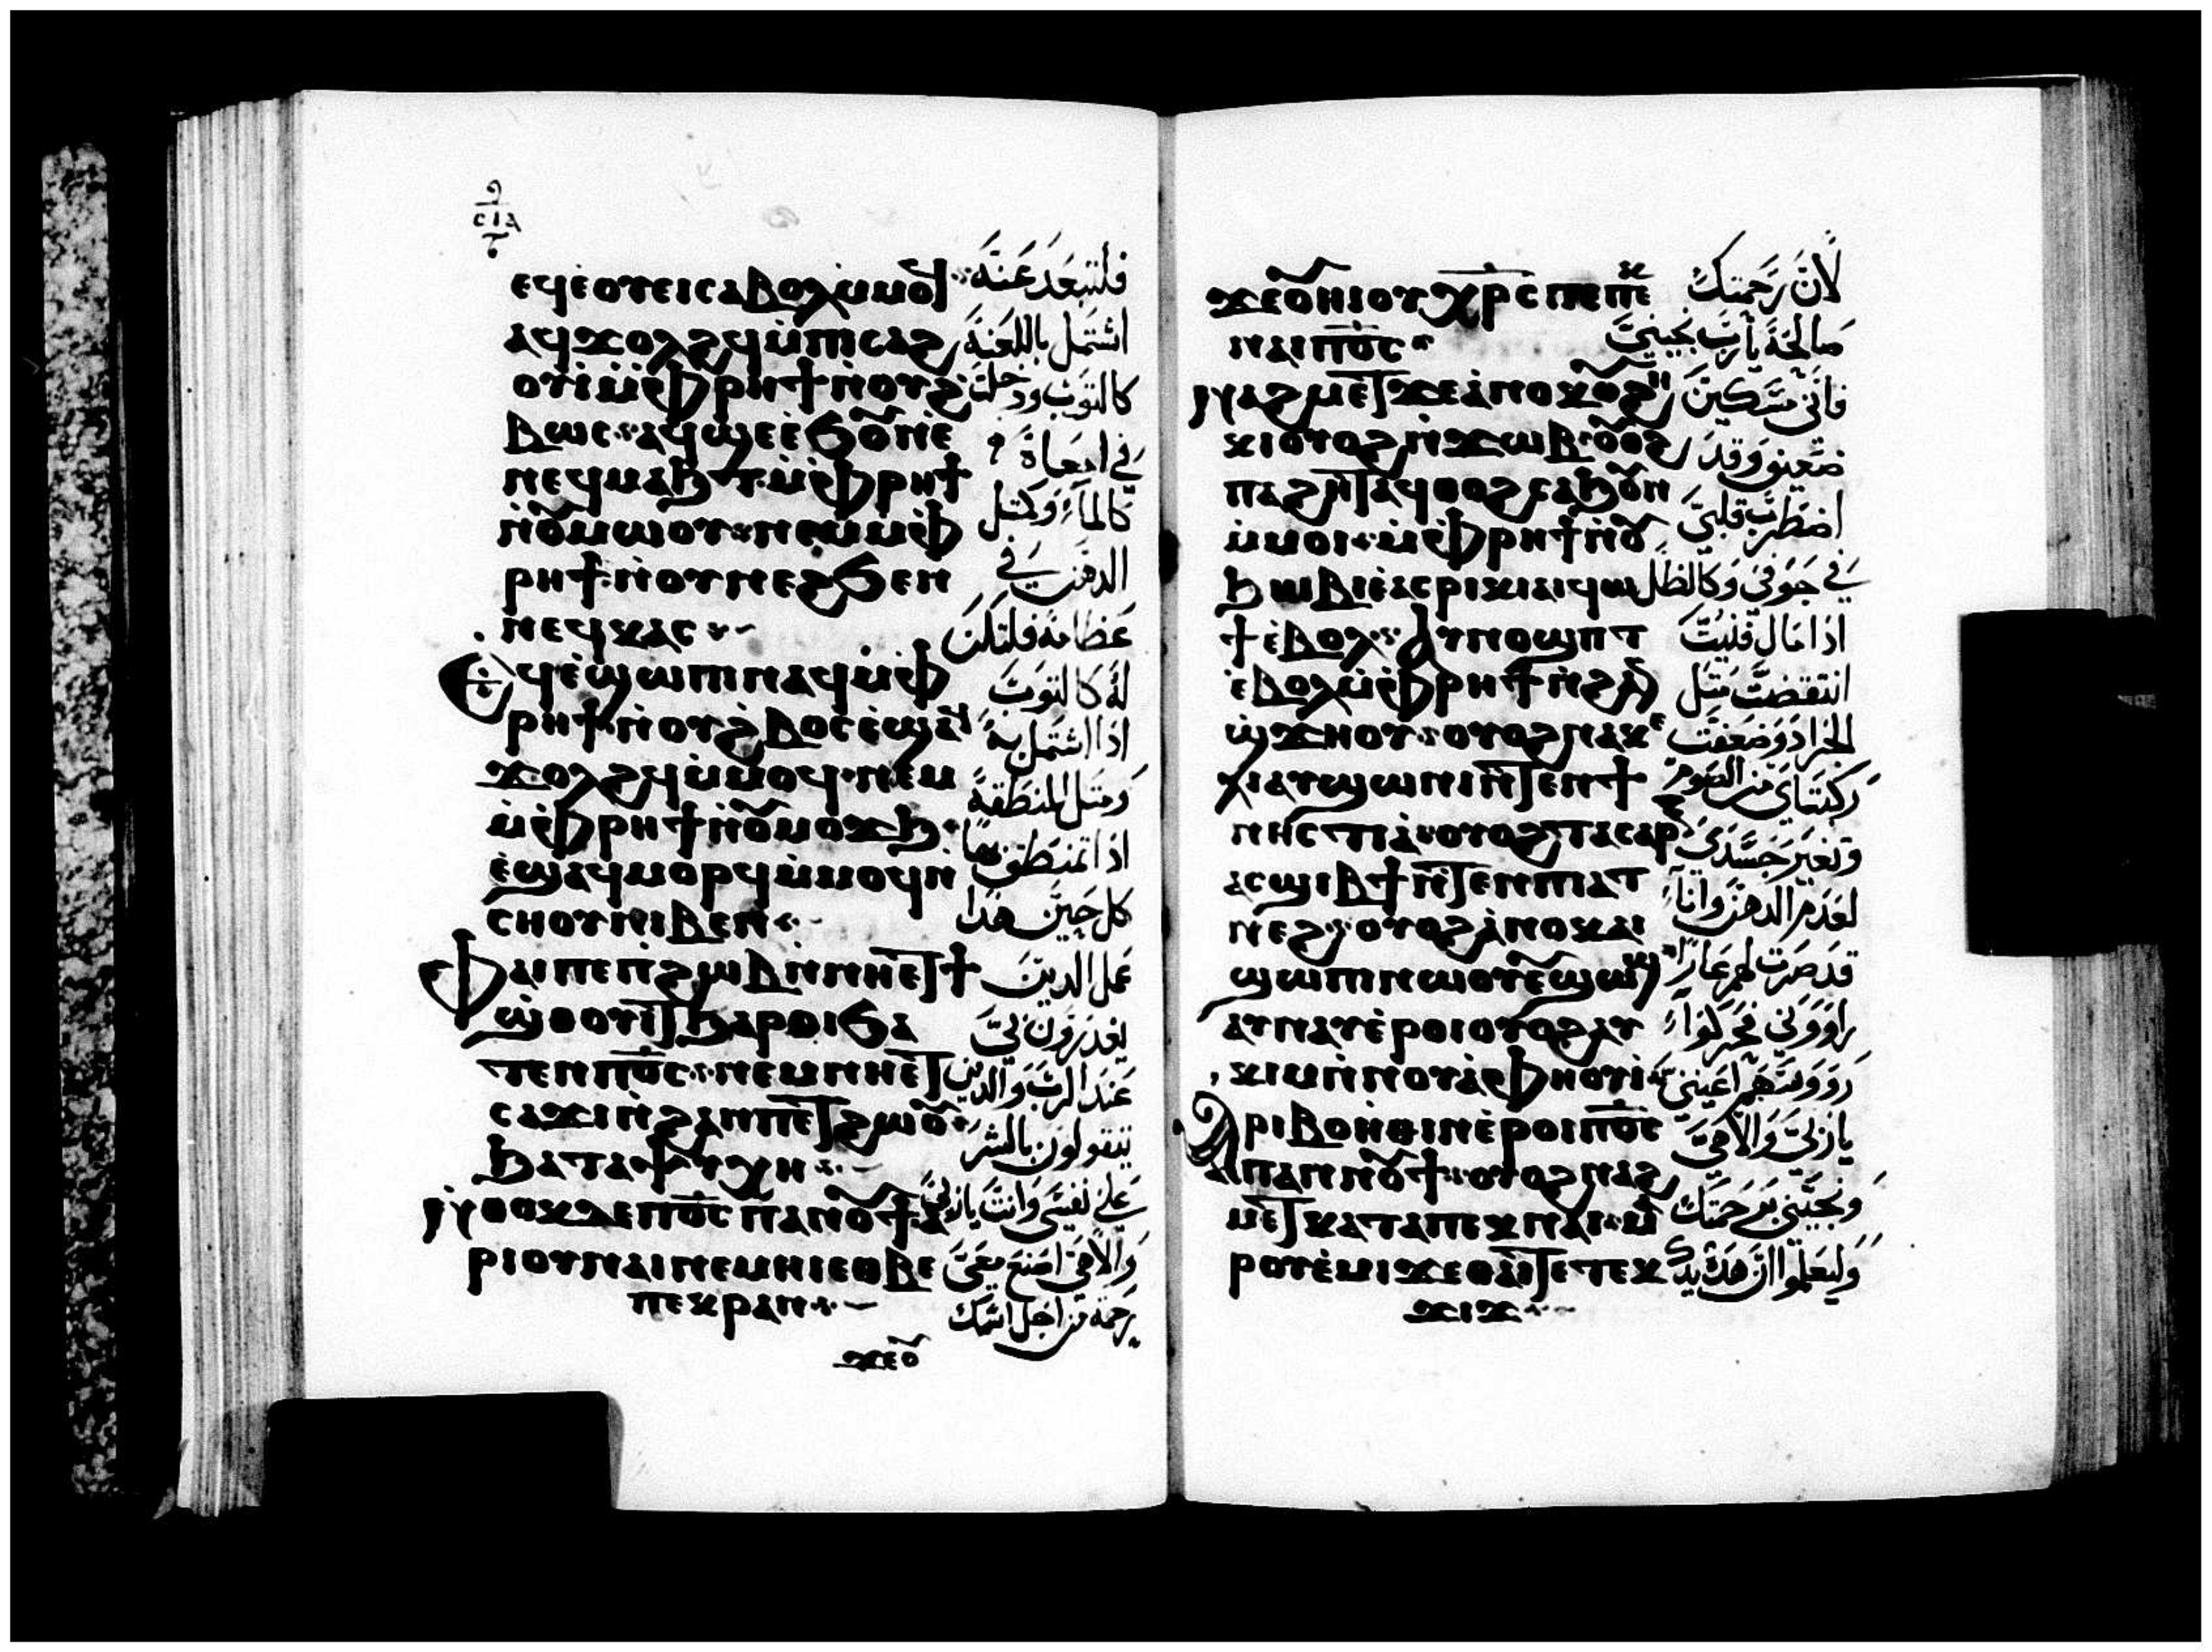 ⲥⲓⲁ
ⲉϥⲉ̀ⲟⲩⲉⲓⲥⲁⲃⲟⲗⲙ̀ⲙⲟϥ
ⲁϥϫⲟⲗϩϥⲙ̀ⲡⲓⲥⲁϩ
ⲟⲩⲓ̀ⲙ̀ⲫⲣⲏϯⲛ̀ⲟⲩϩ̀
ⲃⲱⲥ ⲁϥϣⲉⲉ̀ϧⲟⲩⲛⲉ̀
ⲛⲉϥⲙⲁϧⲧ ⲙ̀ⲫⲣⲏϯ
ⲛ̀ⲟⲩⲙⲱⲟⲩ ⲛⲉⲙⲙ̀ⲫ
ⲣⲏϯⲛ̀ⲟⲩⲛⲉϩϧⲉⲛ
ⲛⲉϥⲕⲁⲥ
ⲉϥⲉ̀ϣⲱⲡⲓⲛⲁϥⲙ̀ⲫ
ⲣⲏϯⲛ̀ⲟⲩϩ̀ⲃⲟⲥⲉ̀ϣⲁϥ
ϫⲟⲗϩϥⲙ̀ⲙⲟϥ ⲛⲉⲙ
ⲙ̀ⲫⲣⲏϯⲛ̀ⲟⲩⲙⲟϫϧ
ⲉ̀ϣⲁϥⲙⲟⲣϥⲙ̀ⲙⲟϥⲛ̀
ⲥⲏⲟⲩⲛⲓⲃⲉⲛ
ⲫⲁⲓⲡⲉⲡϩⲱⲃⲛ̀ⲛⲏⲉⲧϯ
ϣ̀ⲑⲟⲩⲓⲧϧⲁⲣⲟⲓϧⲁ
ⲧⲉⲛⲡϭⲟⲓⲥ ⲛⲉⲙⲛⲏⲉⲧ
ⲥⲁϫⲓⲛ̀ϩⲁⲛⲡⲉⲧϩⲱⲟⲩ
ϧⲁⲧⲁⲯⲩⲭⲏ
ⲛ̀ⲑⲟⲕⲇⲉⲡϭⲟⲓⲥⲡⲁⲛⲟⲩϯⲁ
ⲣⲓⲟⲩⲛⲁⲓⲛⲉⲙⲏⲓⲉⲑⲃⲉ
ⲡⲉⲕⲣⲁⲛ
ϫⲉⲟⲩ
فلتبعد عنه
اشتمل باللعنة
كالتوب ودخلت
في امعاة
كالماء وكمتل
الدهن في
عظامة فلتكن
لة كالتوب
اذا اشتمل به
ومتل المنطقة
اذا تمنطق بها
كل حين هدا
عمل الدين
يغدرون بي
عند الرب والدين
يتقولون بالشر
علي نفسي وانت يارب
والاهي اصنع معي
رحمة من اجل اسمك
ϫⲉⲟⲩⲏⲓⲟⲩⲭⲣⲥⲡⲉⲡⲉⲕ
ⲛⲁⲓⲡϭⲟⲓⲥ
ⲛⲁϩⲙⲉⲧϫⲉⲁ̀ⲛⲟⲕⲟⲩϩⲏ
ⲕⲓⲟⲩⲟϩⲛ̀ϫⲱⲃ ⲟⲩⲟϩ
ⲡⲁϩⲏⲧⲁϥⲑⲟϩⲥⲁϧⲟⲩⲛ
ⲙ̀ⲙⲟⲓ ⲙ̀ⲫⲣⲏϯⲛ̀ⲟⲩ
ϧⲏⲓⲃⲓⲉ̀ⲁⲥⲣⲓⲕⲓⲁⲓϥⲱ
ϯⲉ̀ⲃⲟⲗ ⲁⲩⲛⲟϣⲡⲧ
ⲉ̀ⲃⲟⲗⲙ̀ⲫⲣⲏϯⲛ̀ϩⲁⲛ
ϣ̀ϫⲏⲟⲩ ⲟⲩⲟϩⲛⲁⲕⲉ
ⲗⲓⲁⲩϣⲱⲛⲓⲛ̀ϫⲉⲛϯ
ⲛⲏⲥⲧⲓⲁ̀ ⲟⲩⲟϩⲧⲁⲥⲁⲣⲝ
ⲁⲥϣⲓⲃϯⲛ̀ϫⲉⲛⲡⲓⲁⲧ
ⲛⲉϩ ⲟⲩⲟϩⲁ̀ⲛⲟⲕⲁⲓ
ϣⲱⲡⲓⲛⲱⲟⲩⲉⲩϣⲱϣ
ⲁⲩⲛⲁⲩⲉ̀ⲣⲟⲓⲟⲩⲟϩⲁⲩ
ⲕⲓⲙⲛ̀ⲛⲟⲩⲁ̀ⲫⲏⲟⲩⲓ̀
ⲁⲣⲓⲃⲟⲏⲑⲓⲛⲉ̀ⲣⲟⲓⲡϭⲟⲓⲥ
ⲡⲁⲛⲟⲩϯ ⲟⲩⲟϩⲛⲁϩ
ⲙⲉⲧⲕⲁⲧⲁⲡⲉⲕⲛⲁⲓ ⲙⲁ
ⲣⲟⲩⲉ̀ⲙⲓϫⲉⲑⲁⲓⲧⲉⲧⲉⲕ
ϫⲓϫ
لان رحمتك
صالحة يارب نجيني
فاني مسكين
ضعيف وقد
اضطرب قلبي
في جوفي وكالظل
اذا مال فنيت
انتقضت متل
الجراد وضعفت
ركبتاي من الصوم
وتغير جسدي
لعدم الدهن وانا
قد صرت لهم عارا
راووني فحركوا
رووسهم اعيني
يارب والاهي
ونجيني كرحمتك
وليعلموا ان هده يدك